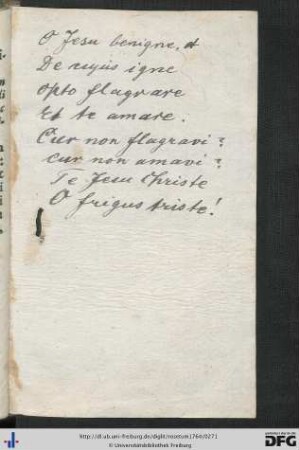 O Jesu benigne,
De cujus igne
Opto flagrare
Et te amare.
Cur non flagravi?
Cur non amavi?
Te Jesu Christe
O frigus triste!
http://dl.ub.uni-freiburg.de/diglit/rosetum1760/0271
© Universitätsbibliothek Freiburg
DFG